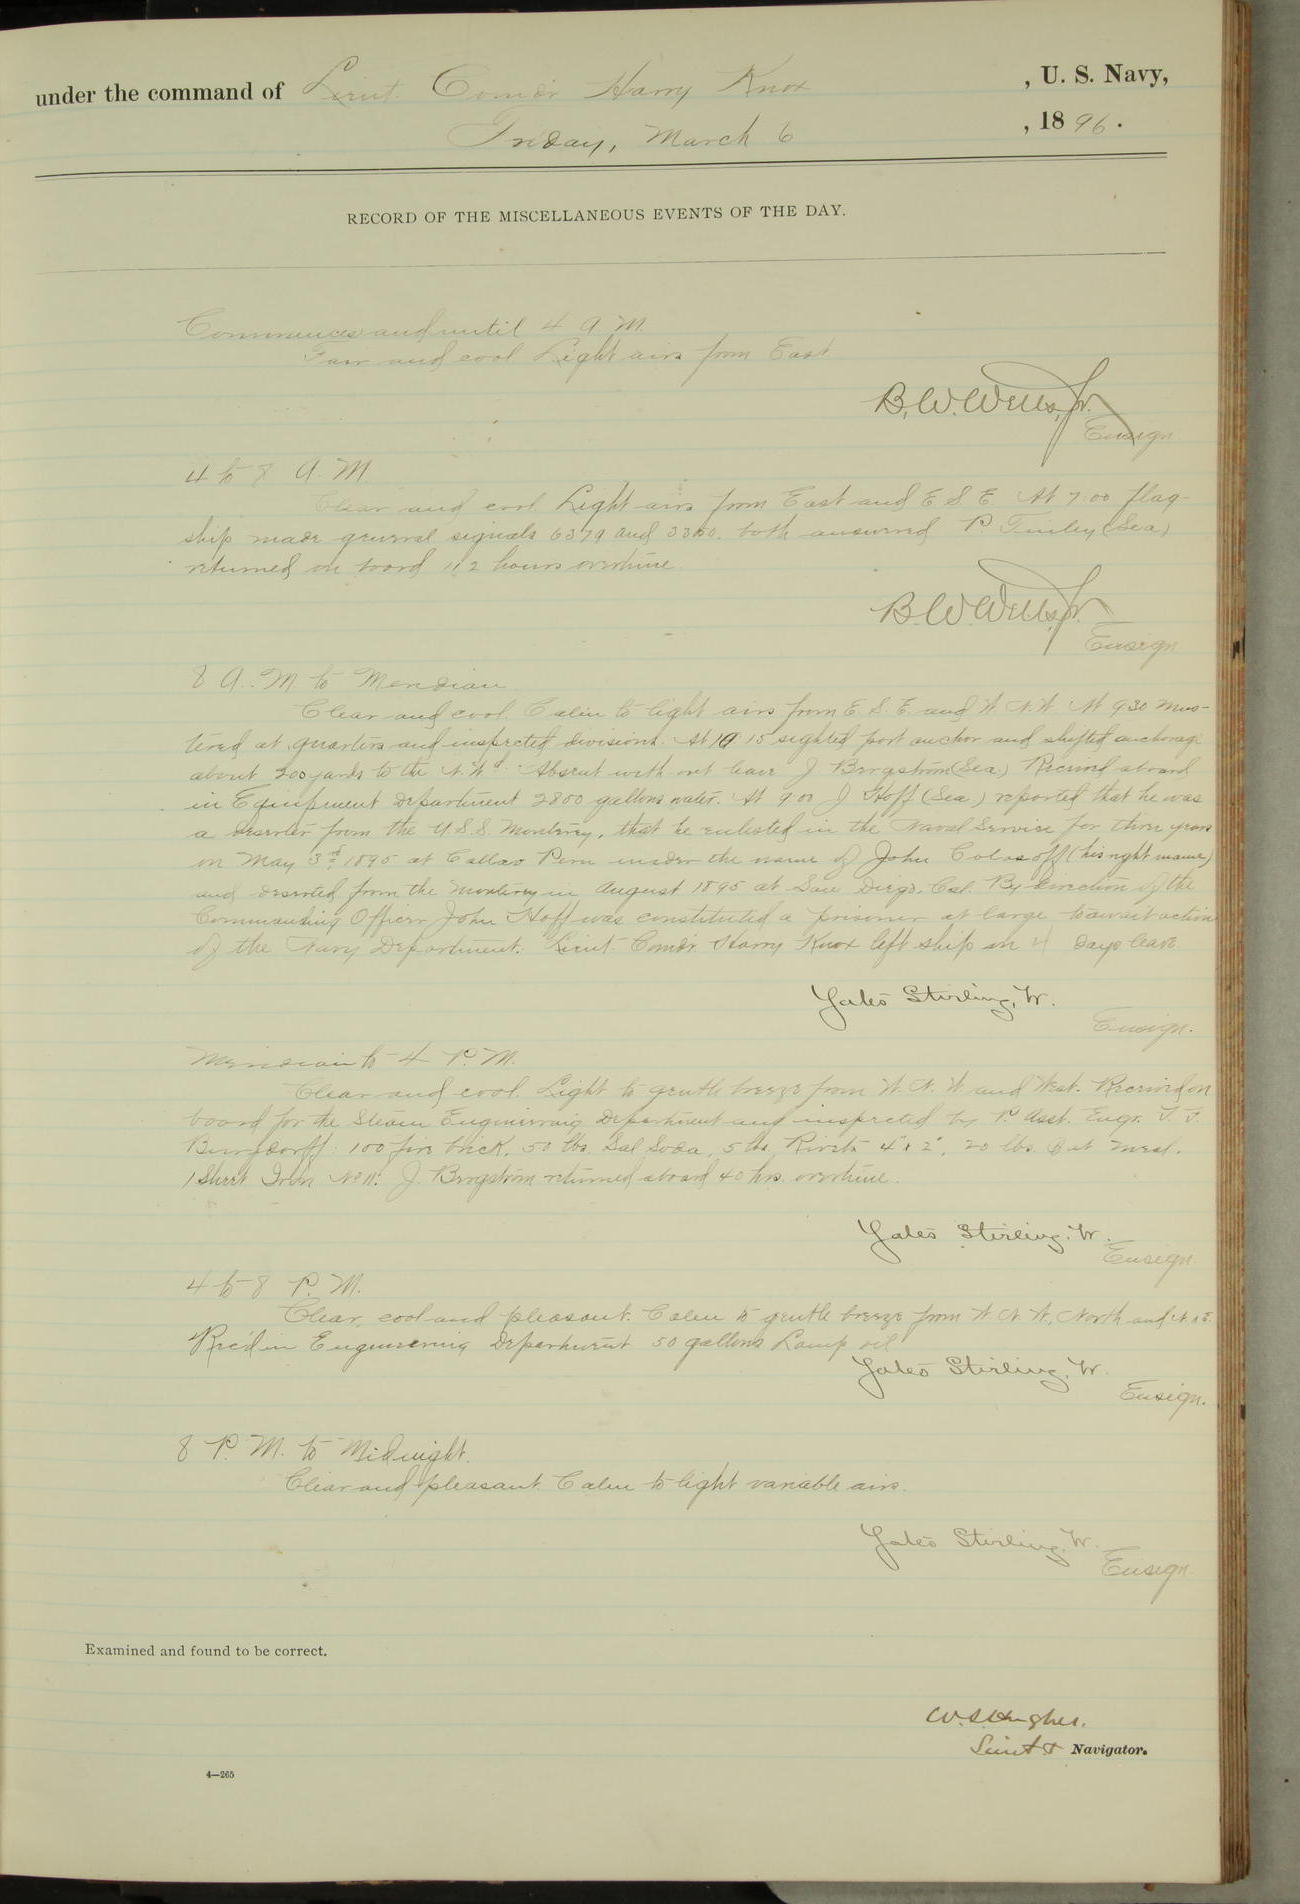 under the command of Lieut. Comdr Harry Knox , U. S. Navy,
Friday, March 6 , 1896.
RECORD OF THE MISCELLANEOUS EVENTS OF THE DAY.
Commences and until 4 A M.
Fair and cool Light airs from East
B. W. Wells, Jr.
Ensign
4 to 8 A. M
Clear and cool Light airs from East and E S E At 7.00 flag-
ship made general signals 6379 and both answered P. (Sea)
returned on board 112 hours overtime.
B. W. Wells, Jr.
Ensign
8 A. M. to Meridian
Clear and cool. Calm to light airs from E. S. E. and W. N. W. At 9.30 mus-
tered at quarters and inspected divisions. At 10 15 sighted port anchor and shifted anchorage
about 200 yards to the N. Wd. Absent with out leave J Bergstrom (Sea) Received aboard
in Equipment Department 2800 gallons water. At 9.00 J Hoff (Sea) reported that he was
a deserter from the U.S.S. Monterey, that he enlisted in the Naval Service for three years
on May 3rd 1895 at Callao Peru under the name of John Colasoff (his right name)
and deserted from the Monterey in August 1895 at San Diego, Cal. By direction of the
Commanding Officer John Hoff was constituted a prisoner at large to await action
of the Navy Department. Lieut. Comdr. Harry Knox left ship on 4 days leave
Yates Stirling, Jr.
Ensign.
Meridian to 4 P. M.
Clear and cool. Light to gentle breeze from W. N. W and West. Received on
board for the Steam Engineering Department and inspected by P. Asst. Engr. T. F.
Burgdorff: 100 fire brick, 50 lbs. Sal Soda, 5 lbs Rivets 4" x 2", 20 lbs. Oat meal.
1 Sheet Iron No 11. J. Bergstrom returned aboard 40 hrs. overtime.
Yates Stirling, Jr.
Ensign
4 to 8 P. M.
Clear, cool and pleasant. Calm to gentle breeze from W N W, North and N N E.
Rec'd in Engineering Department 50 gallons Lamp oil
Yates Stirling, Jr.
Ensign.
8 P. M. to Midnight.
Clear and pleasant. Calm to light variable airs.
Yates Stirling, Jr.
Ensign
Examined and found to be correct.
W. S. Hughes.
Lieut & Navigator.
4—265